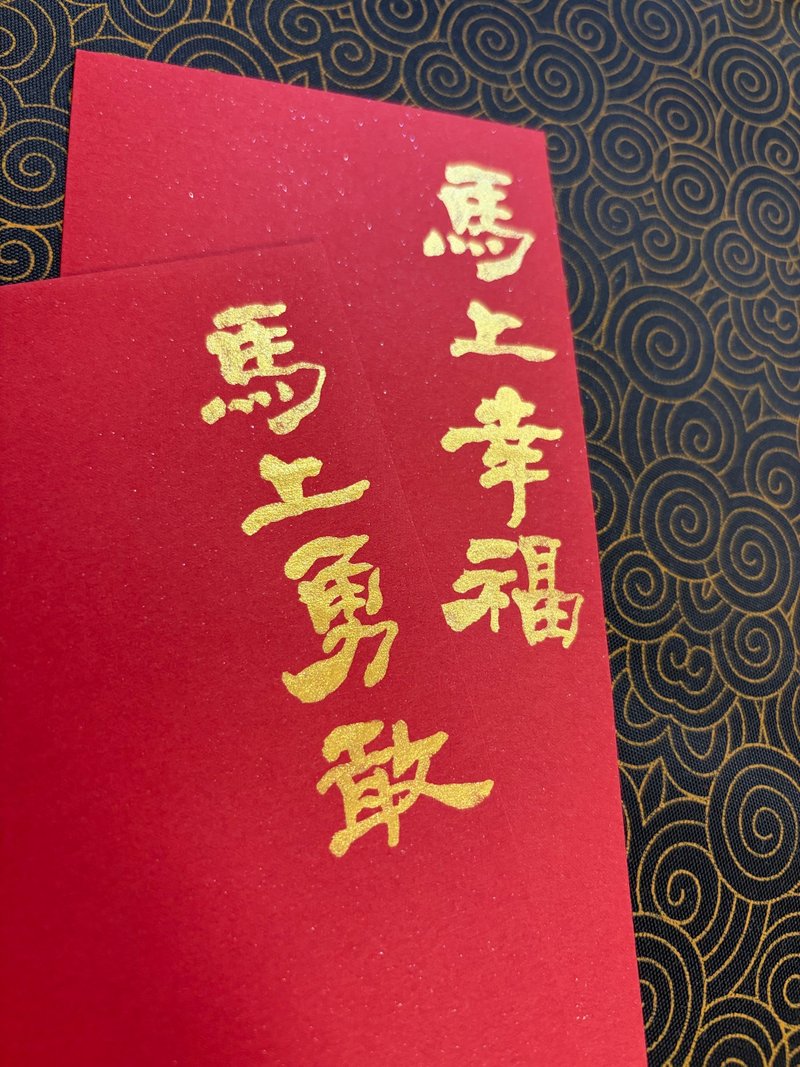 馬上幸福
馬上勇敢